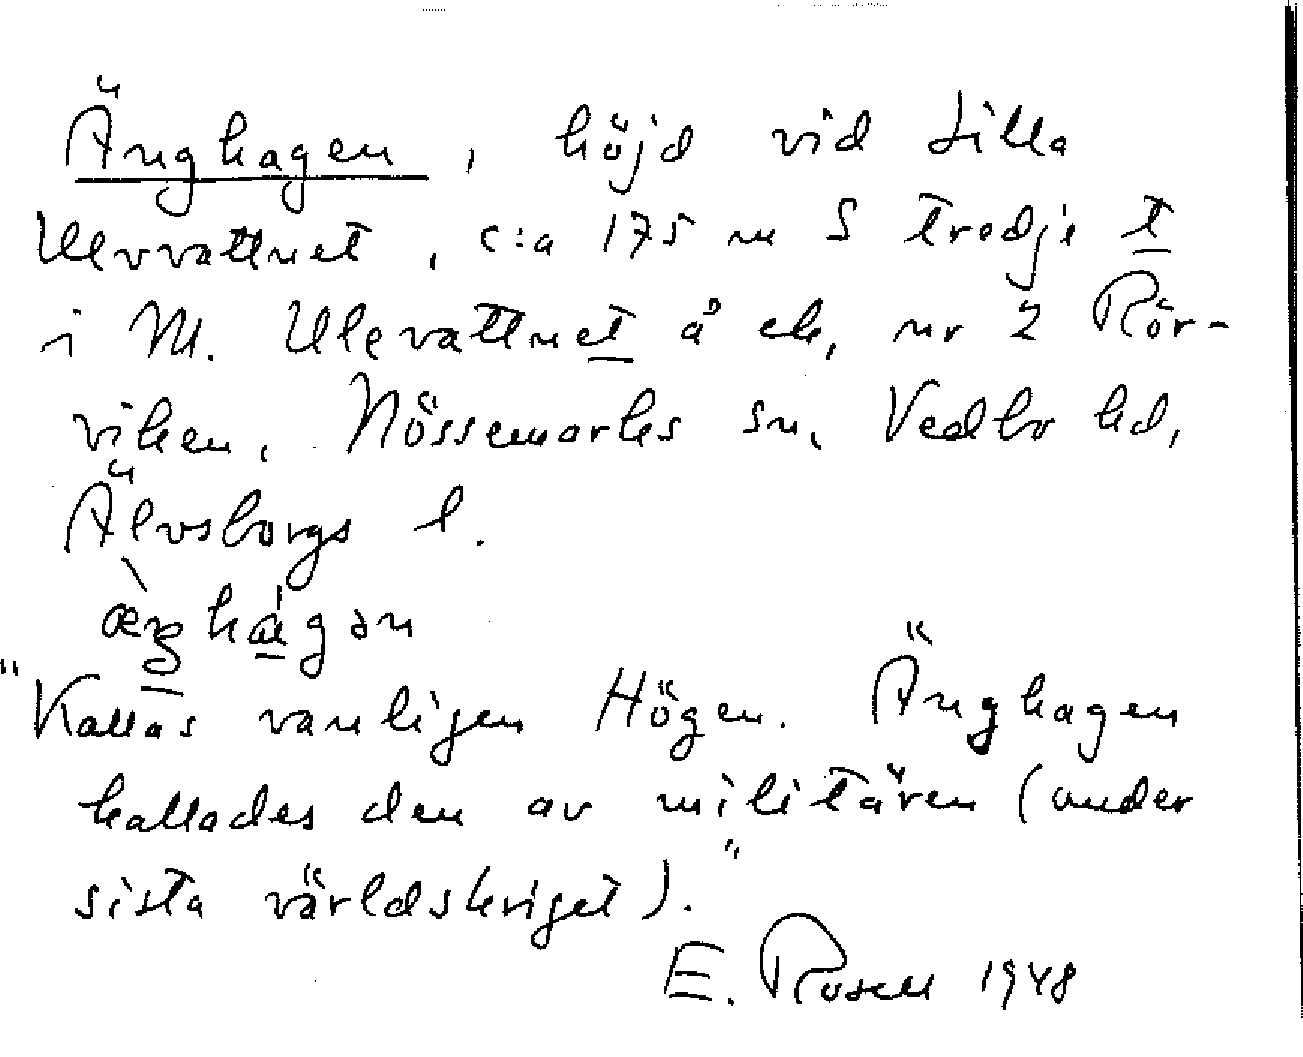 Änghagen, höjd vid Lilla
Ulevattnet, c:a 175 m S tredje t
i M. Ulevattnet å ek, nr 2 Rör-
viken, Nössemarks sn, Vedbo hd,
Älvsborgs l.
æ̀ŋhágən
"Kallas vanligen Högen. Änghagen
kallades den av militären (under
sista världskriget)."
E. Rosell 1948